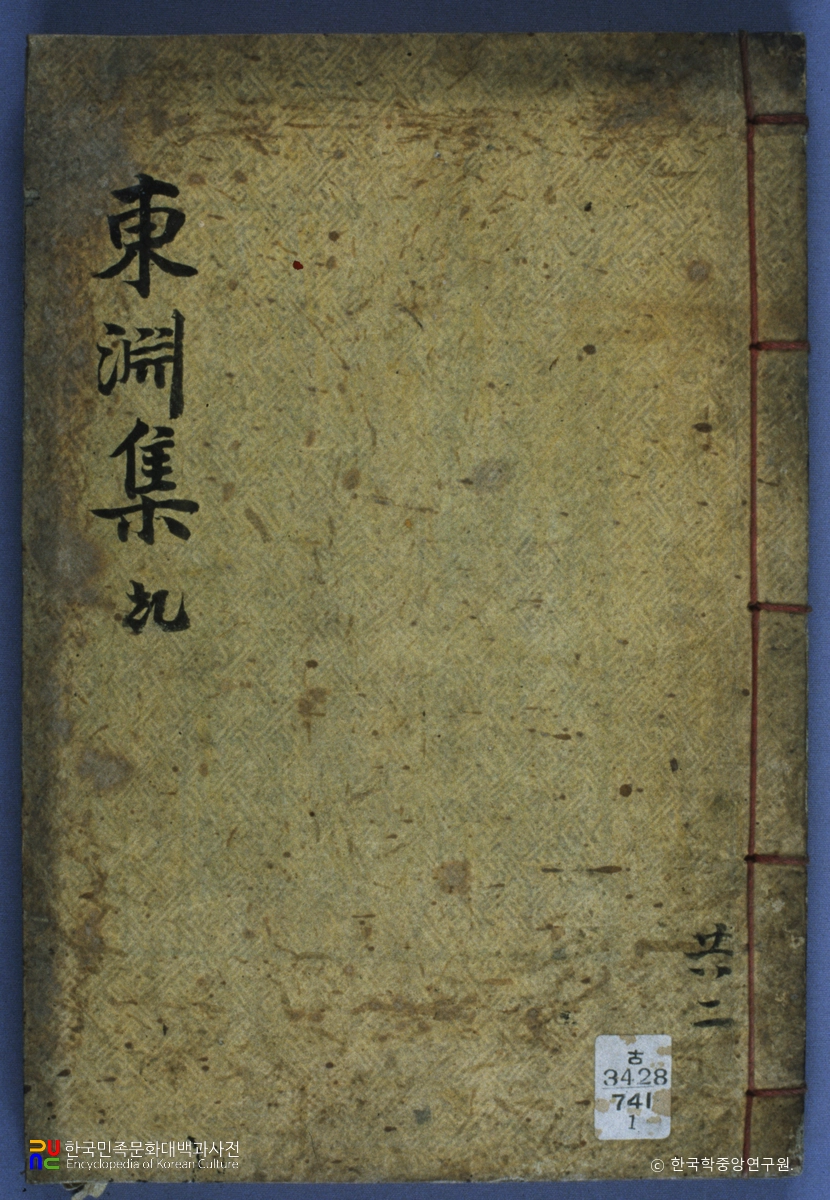 東淵集
共二
古
3428
741
1
한국민족문화대백과사전
Encyclopedia of Korean Culture
© 한국학중앙연구원